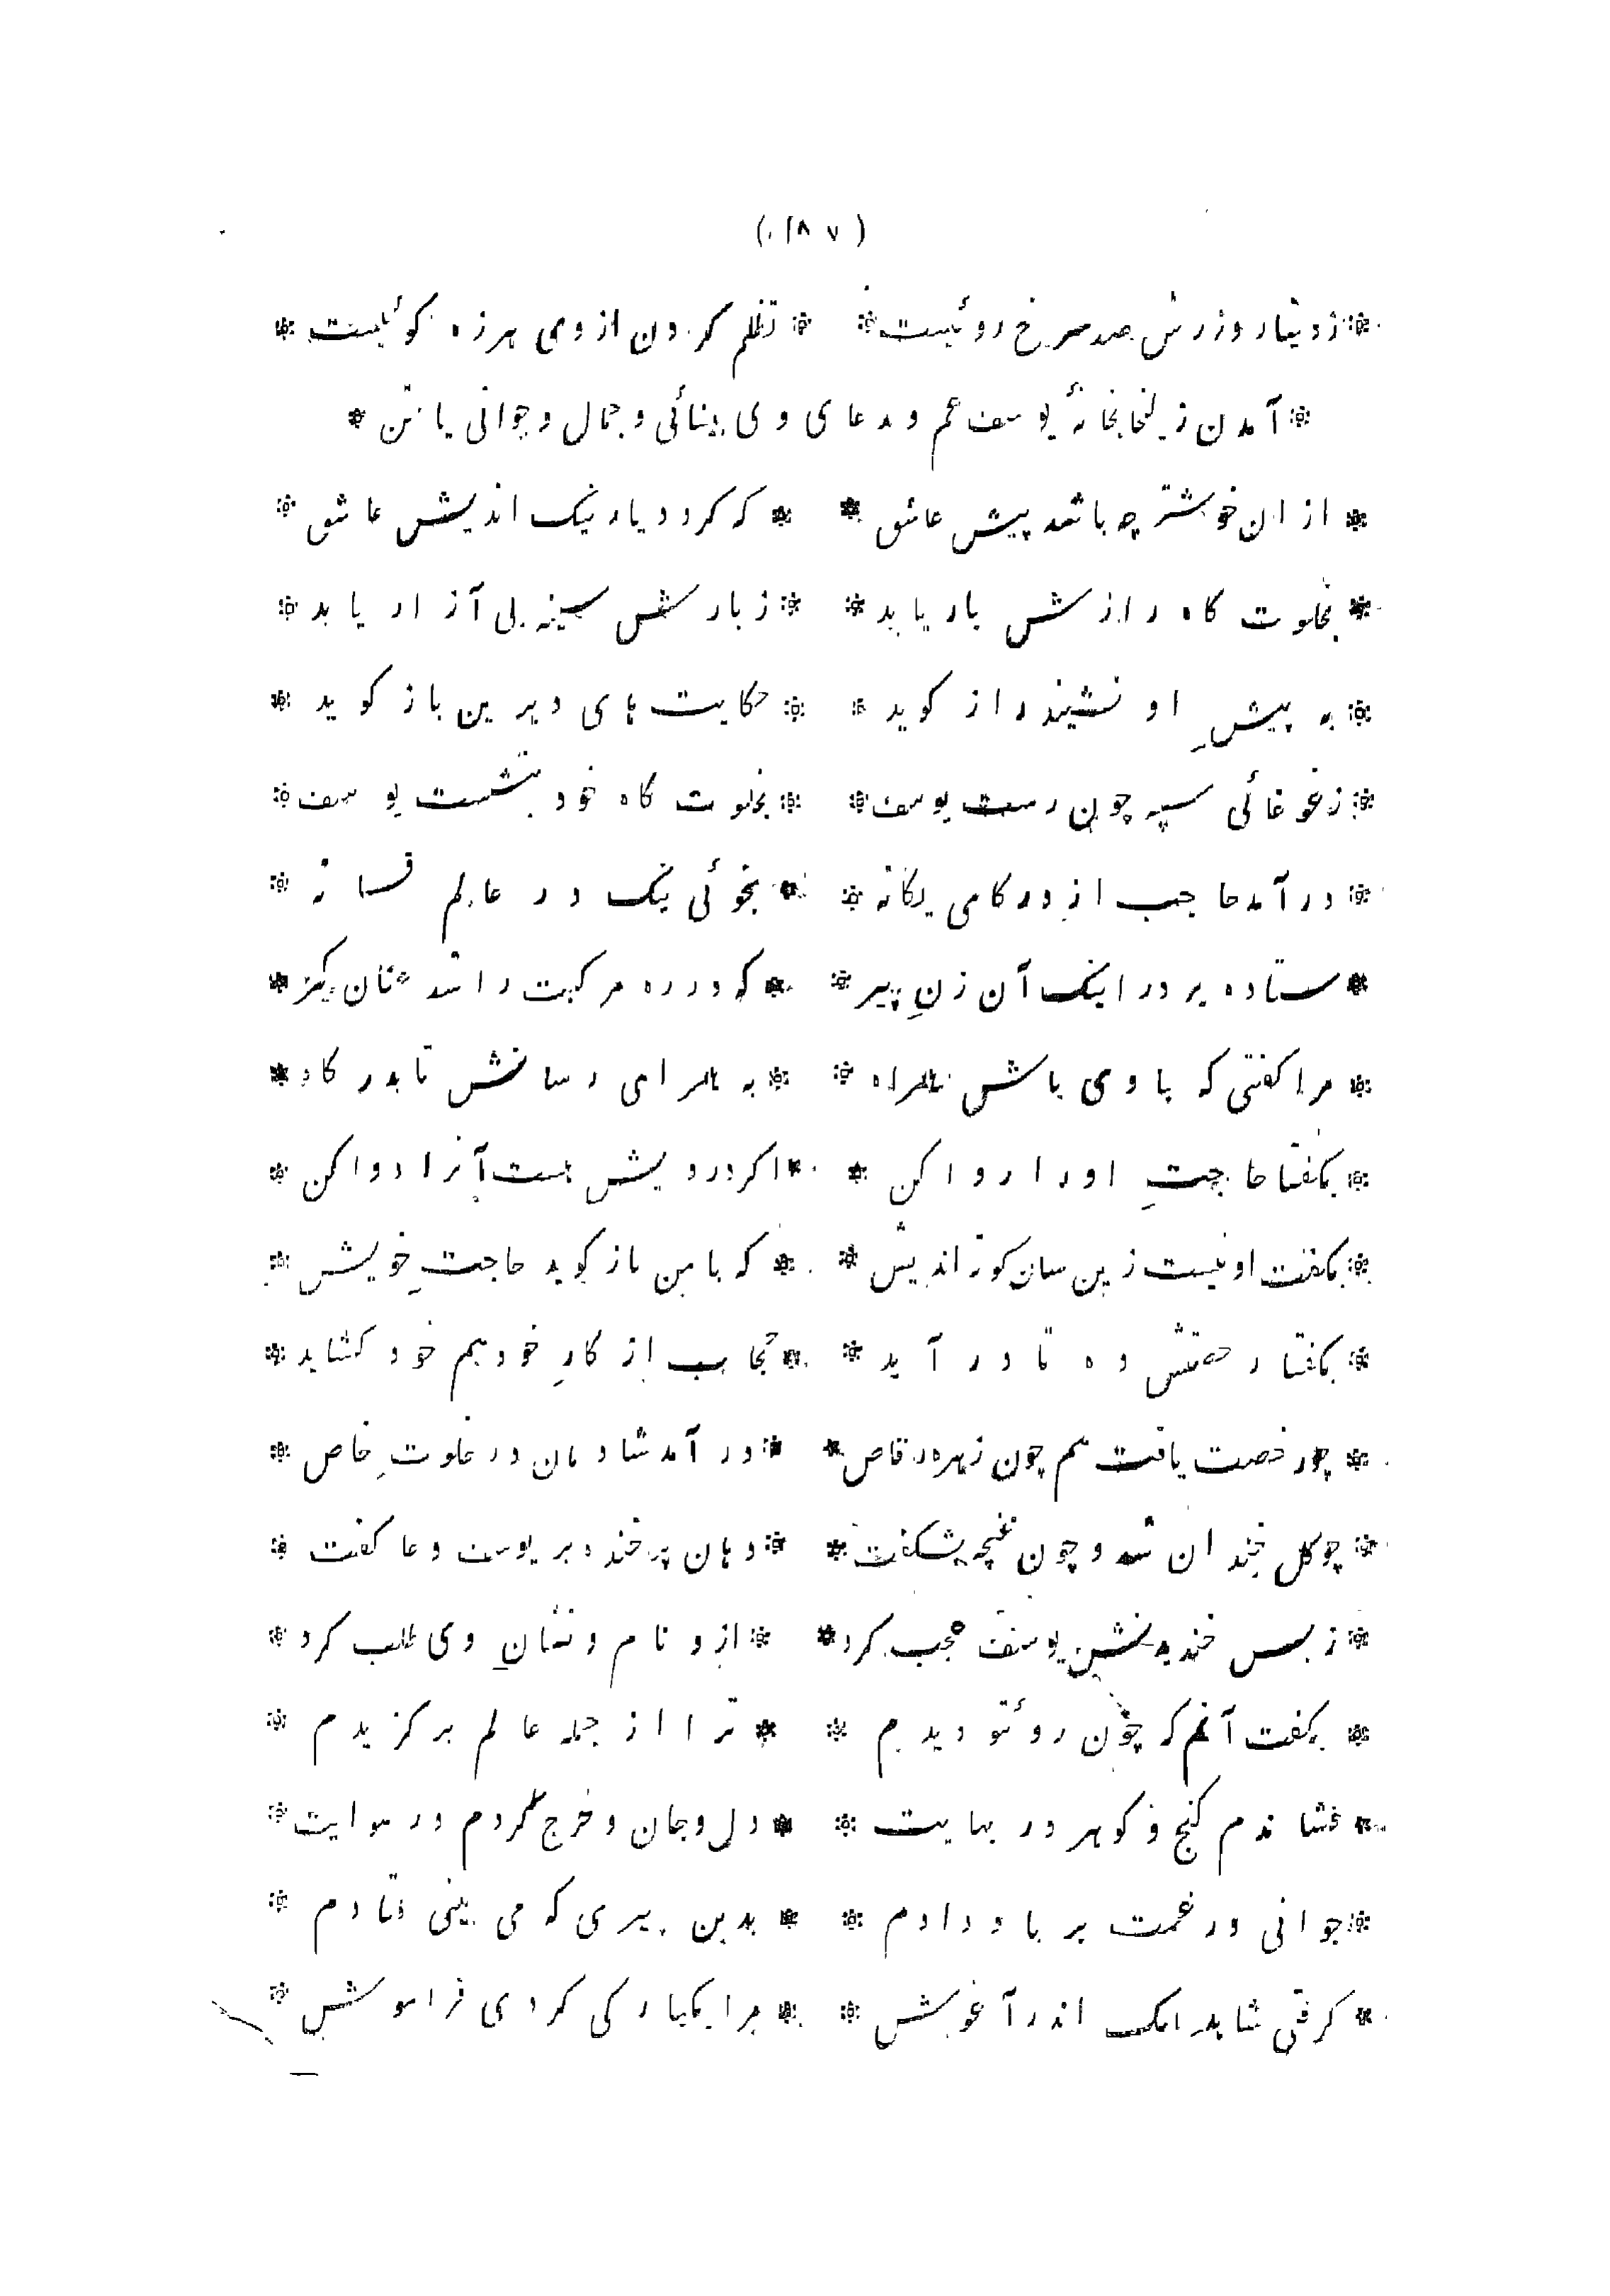 (۱۸۷)
* ز دینار و زرش صد سرخ روئیست * * تظلم کردن از وی هرزه کوئیست *
* آمدن زلیخا بخانهٔ یوسف عم و دعای وی بینائی و جمال و جوانی یافتن *
* از ان خوشتر چه باشد پیش عاشق * * که کردد یار نیک اندیش عاشق *
* بخلوت کاه رازش بار یابد * * ز بارش سینه بی آزار یابد *
* به پیشِ او نشیند راز کوید * * حکایت های دیرین باز کوید *
* ز غوغائی سپه چون رست یوسف * * بخلوت کاه خود بنشست یوسف *
* در آمد حاجب از در کامی یکانه * * بخوئی نیک در عالم فسانه *
* ستاده بر در اینک آن زنِ پیر * * که در ره مرکبت را شد عنان کیر *
* مرا کفتی که با وی باش همراه * * به همراهی رسانش تا بدر کاه *
* بکفتا حاجتِ او را روا کن * * اکر درویش هست آنرا دوا کن *
* بکفت او نیست زین سان کوته اندیش * * که با من باز کوید حاجتِ خویش *
* بکفتا رخصتش ده تا در آید * * حجاب از کارِ خود هم خود کشاید *
* چو رخصت یافت هم چون زهره رقاص * * در آمد شادمان در خلوتِ خاص *
* چو کل خندان شد و چون غنچه بشکفت * * دهان پر خنده بر یوسف دعا کفت *
* ز بس خندیدنش یوسف عجب کرد * * ازو نام و نشانِ وی طلب کرد *
* بکفت آنم که چون روئتو دیدم * * ترا از جمله عالم بر کزیدم *
* فشاندم کنج و کوهر در بهایت * * دل و جان و خرج کردم در هوایت *
* جوانی در غمت بر باد دادم * * بدین پیری که می بینی فتادم *
* کرفتی شاهد ملک اندر آغوش * * مرا یکبارکی کردی فراموش *